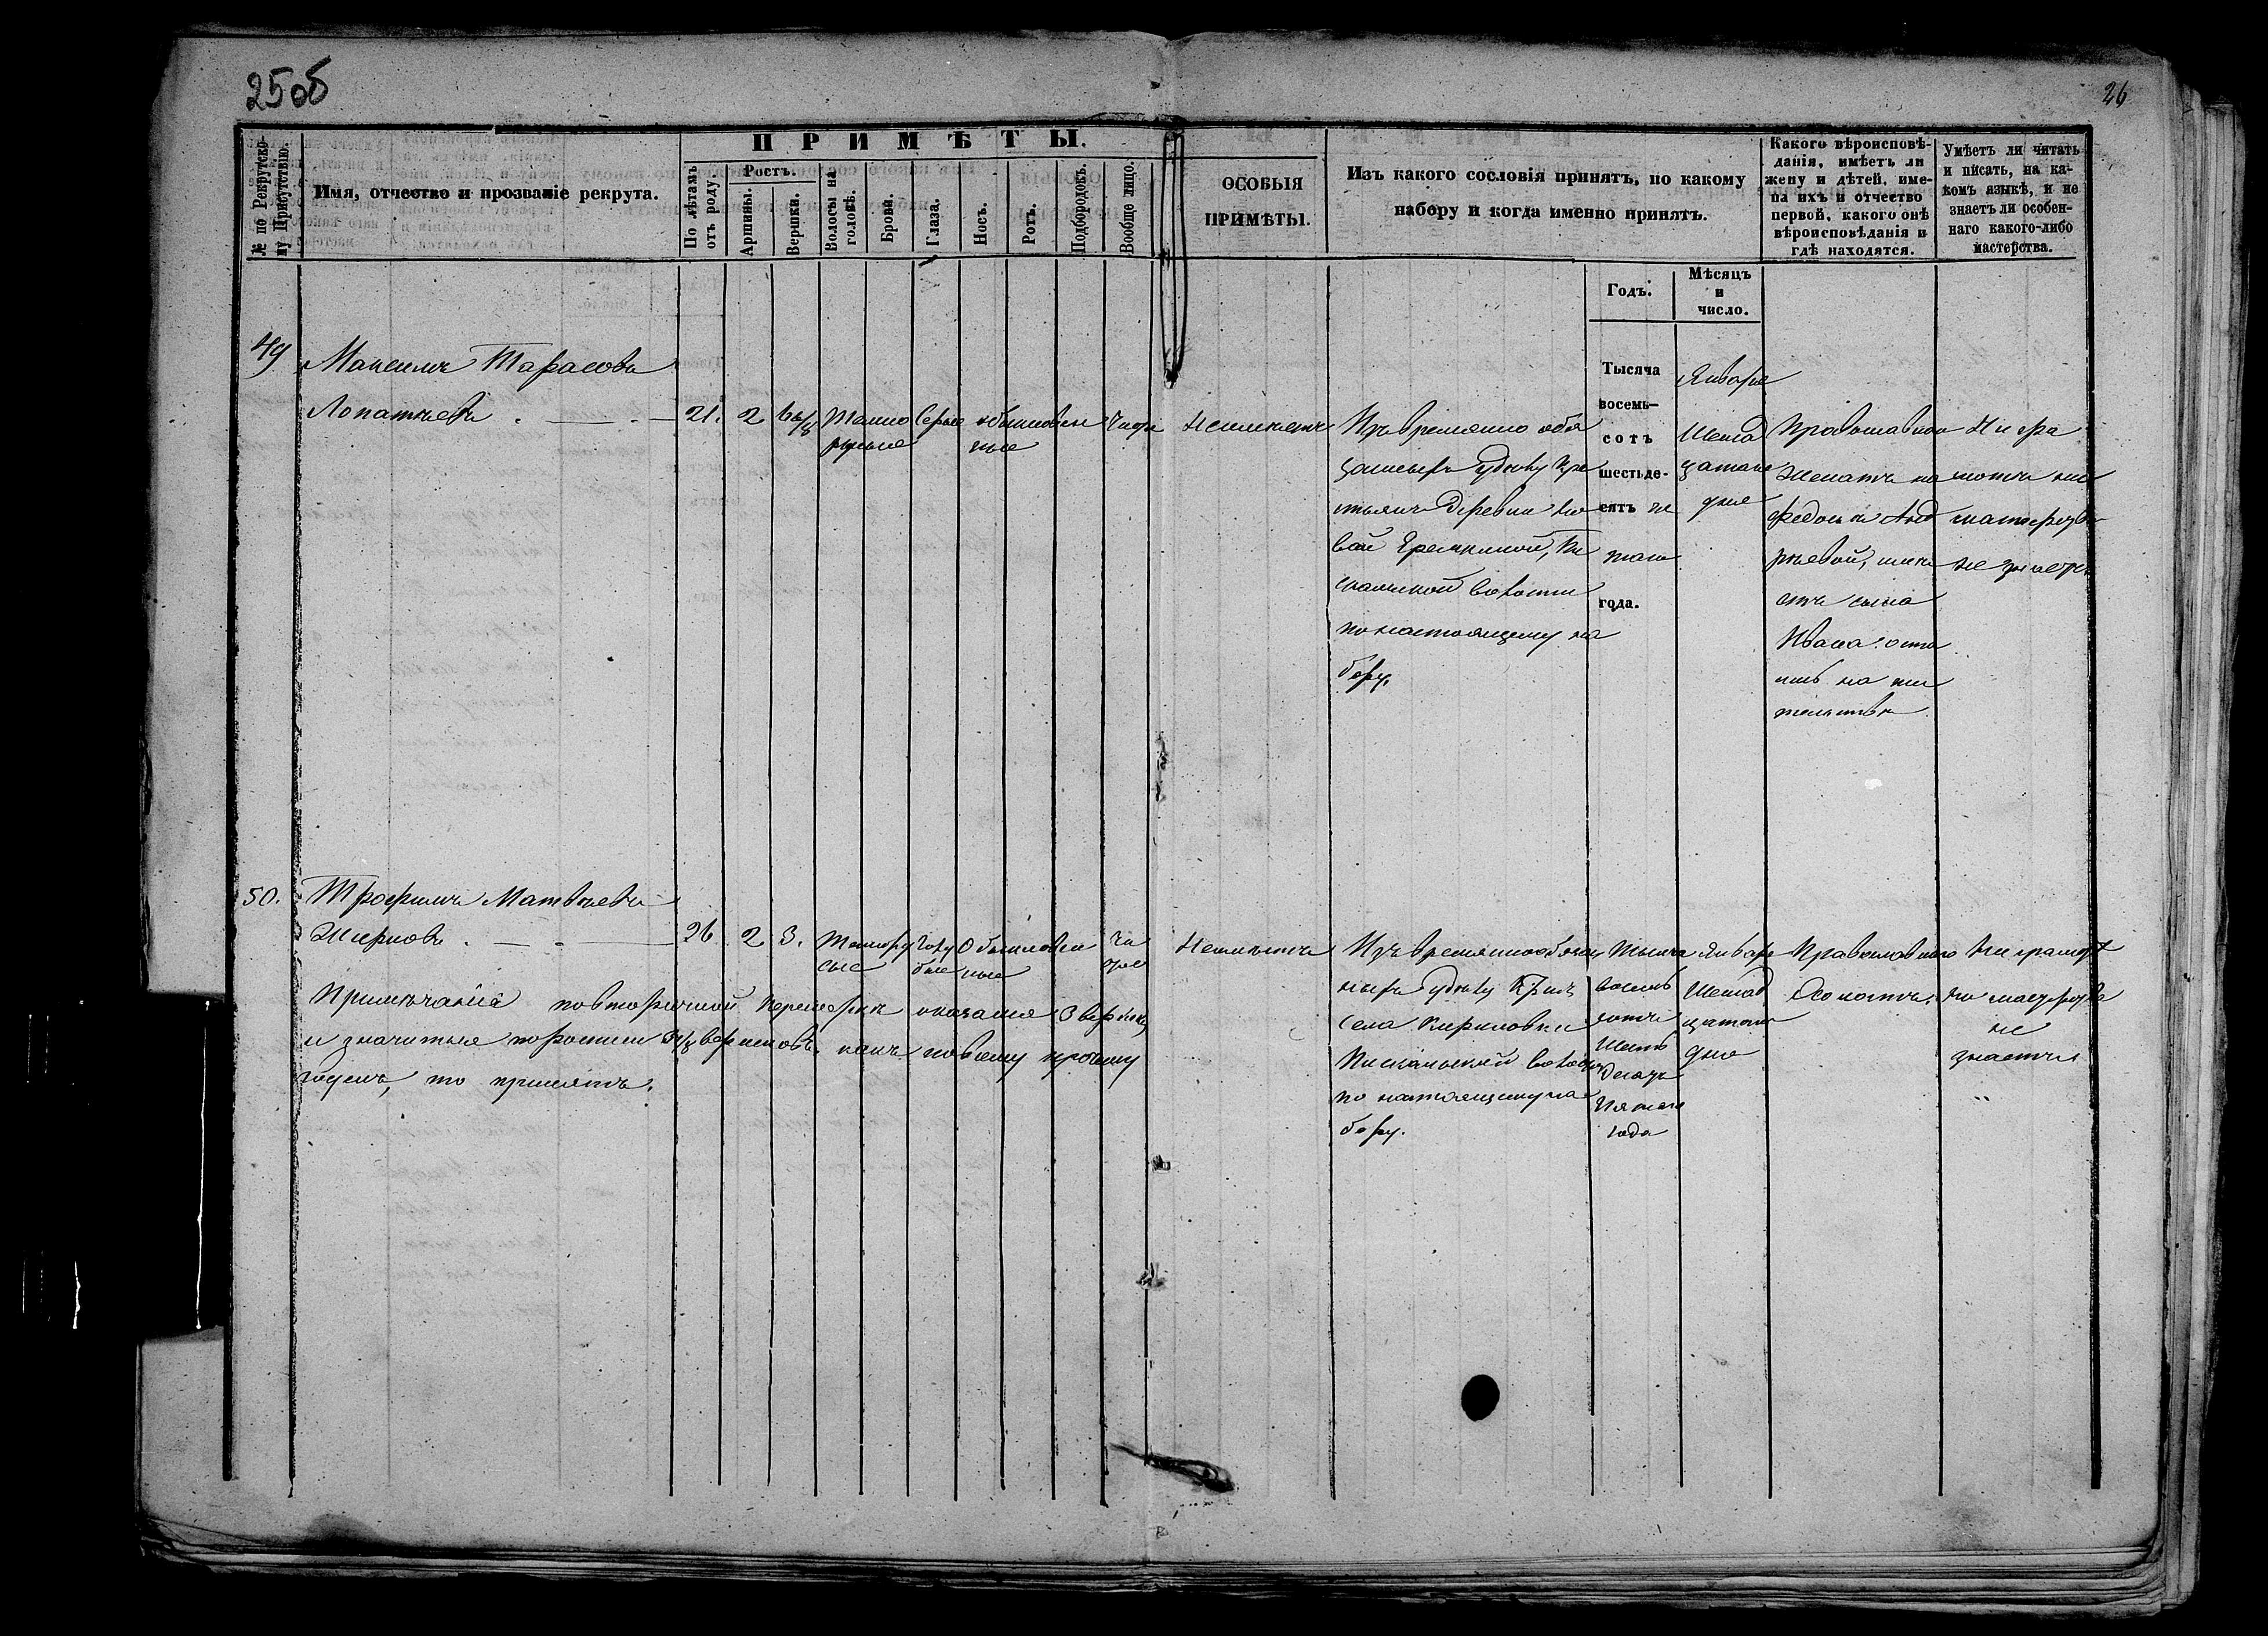 25об
26
№ по Рекрутско-
му Присутствію.
Имя, отчество и прозваніе рекрута.
ПРИМѢТЫ.
По лѣтамъ
отъ роду
Ростъ.
Аршины.
Вершки.
Волосы на
головѣ.
Брови.
Глаза.
Носъ.
Ротъ.
Подбородокъ.
Вообще лицо.
ОСОБЫЯ
ПРИМѢТЫ.
Изъ какого сословія принятъ, по какому
набору и когда именно принятъ.
Годъ.
Мѣсяцъ
и
число.
Какого вѣроисповѣ-
данія, имѣетъ ли
жену и дѣтей, име-
на ихъ и отчество
первой, какого онѣ
вѣроисповѣданія и
гдѣ находятся.
Умѣетъ ли читать
и писать, на ка-
комъ языкѣ, и не
знаетъ ли особен-
наго какого-либо
мастерства.
49
Максимъ Тарасовъ
Лопатневъ
21. 2
Темно
русые
Серые
обыкновен
ные
Чист
Неимѣетъ
Изъ временно обя
занныхъ Удѣлу кре
стьянъ деревни Но
вой Еремкиной,
волости
по настоящему на
бору.
Тысяча
восемь-
сотъ
шестьде-
сятъ пя
таго
года.
Января
Шеснад
цатаго
дня
Православнаго
Женатъ на
Федосьи Анд
реевой, имѣ
етъ сына
Ивана: оста
лись на жи
тельствѣ
Не гра
мотенъ
мастерства
не знаетъ
50.
Трофимъ Матвѣевъ
Жирновъ
26 2 3.
Темнору
сые
Голу
бые
Обыкновен
ные
Чи
стое
Неимѣетъ
Изъ временнообязан
ныхъ Удѣлу
села Кириловки
Писка́льской волости
по настоящему на
бору.
Тысяча
восемь
сотъ
шесть
десять
пятаго
года
Января
Шеснад
цатаго
дня
Православнаго
Холостъ.
Не грамот
но мастерства
не
знаетъ
Примѣчаніе по вторичной перемѣркѣ оказался 3 вершка,
и значиться ростомъ 3 1/8 вершковъ, какъ по всему прочему
годенъ, то принятъ.